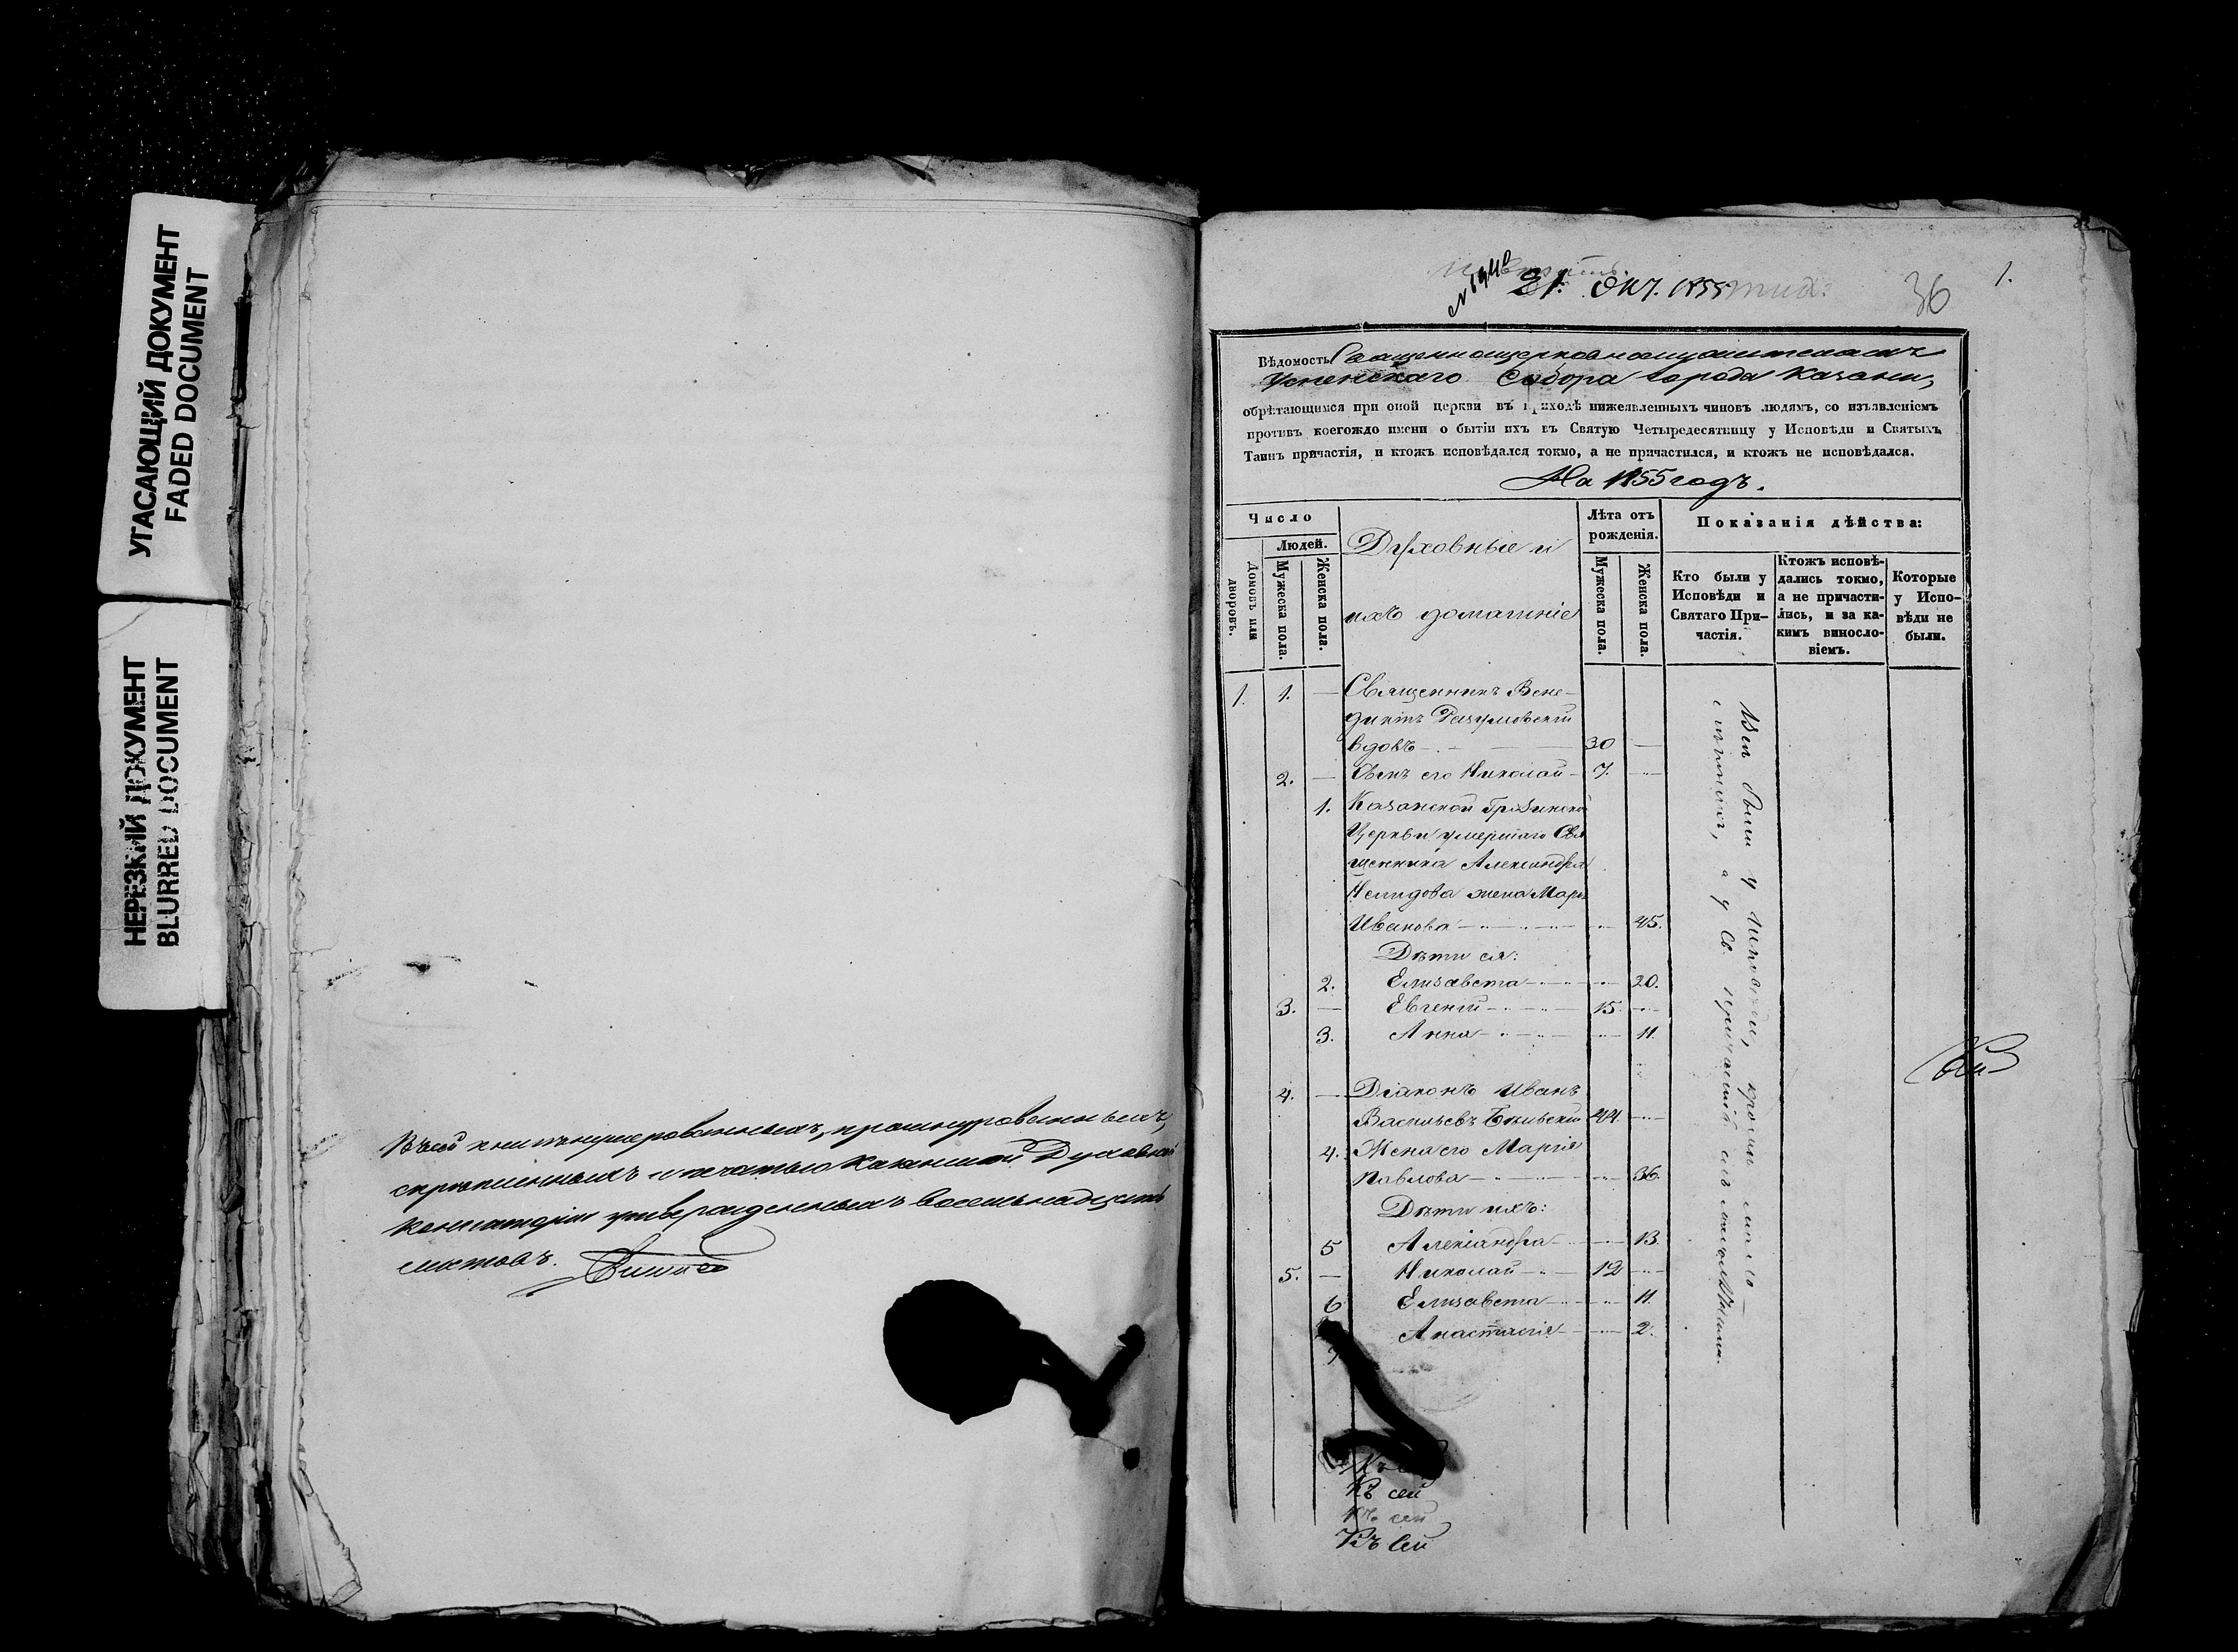 УГАСАЮЩИЙ ДОКУМЕНТ
FADED DOCUMENT
НЕРЕЗКИЙ ДОКУМЕНТ
BLURRED DOCUMENT
Въ сей книгѣ нумерованныхъ, прошнурованныхъ,
скрѣпленныхъ и печатью Казанской Духовной
Консисторіи утвержденныхъ восемьнадцать
листовъ.
21. Окт. 1855
36
1.
Вѣдомость Священноцерковнослужителямъ
Успенскаго Собора города Казани,
обрѣтающимся при оной церкви въ приходѣ нижеявленныхъ чиновъ людямъ, со изъявленіемъ
противъ коегождо имени о бытіи ихъ въ Святую Четыредесятницу у Исповѣди и Святыхъ
Таинъ причастія, и ктожъ исповѣдался токмо, а не причастился, и ктожъ не исповѣдался.
На 1855 годъ.
Число
Людей.
Домовъ или дворовъ.
Мужеска пола.
Женска пола.
Духовные и
ихъ домашніе
Лѣта отъ рожденія.
Мужеска пола.
Женска пола.
Показанія дѣйства:
Кто были у Исповѣди и Святаго При-частія.
Ктожъ исповѣ-дались токмо, а не причасти-лись, и за ка-кимъ винословіемъ.
Которые у Испо-вѣди не были.
1. 1. — Священникъ Вене-
диктъ Разумовскій
вдовъ — 30 —
2. — Сынъ его Николай — 7. —
1. Казанской Грузинской
Церкви умершаго Свя
щенника Александра
Нелидова жена Марья
Иванова — 45.
Дѣти ея:
2. Елисавета — 20.
3. — Евгеній — 15. —
3. Анна — 11.
4. — Діаконъ Иванъ
Васильевъ 44. —
4. Жена его Марія
Павлова — 36.
Дѣти ихъ:
5 Александра — 13.
5. — Николай — 12 —
6 Елизавета — 11.
7 Анастасія — 2.
Всѣ были у Исповѣди, кромѣ
а у Св. причастія
Къ сей
Къ сей
Къ сей